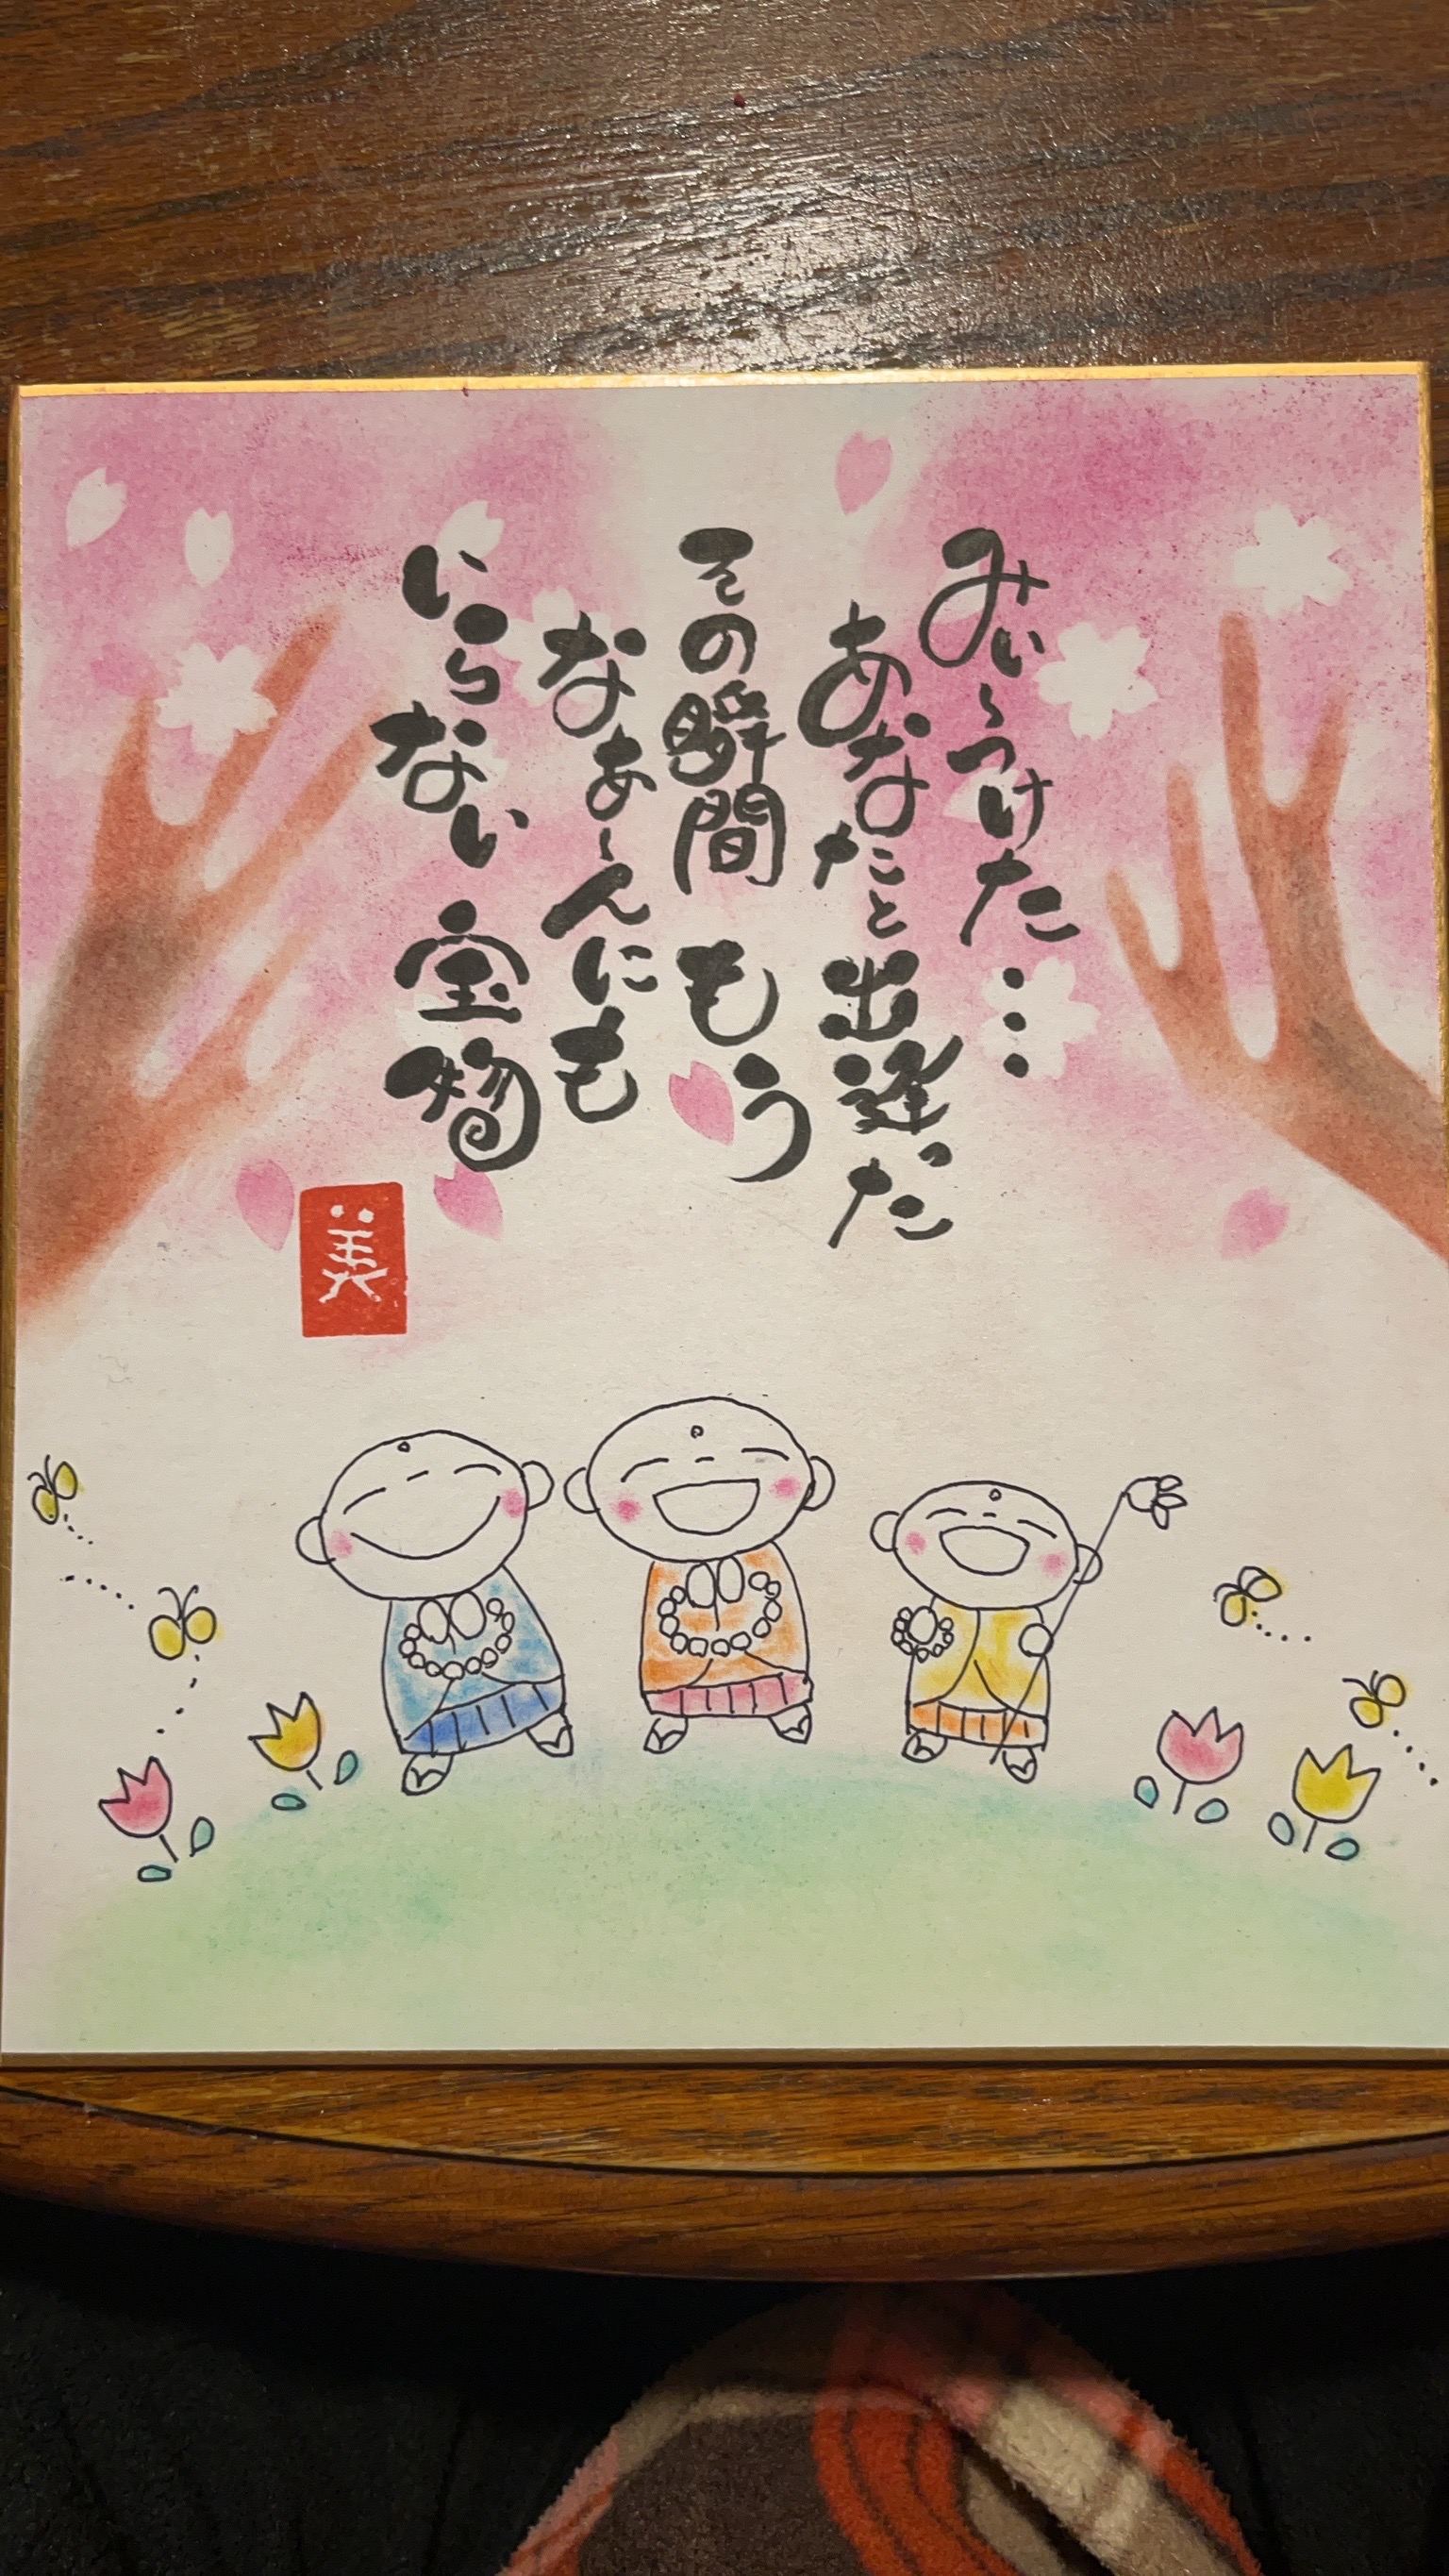 みぃ〜つけた…
あなたと出逢った
その瞬間 もう
なぁ〜んにも
いらない 宝物
美